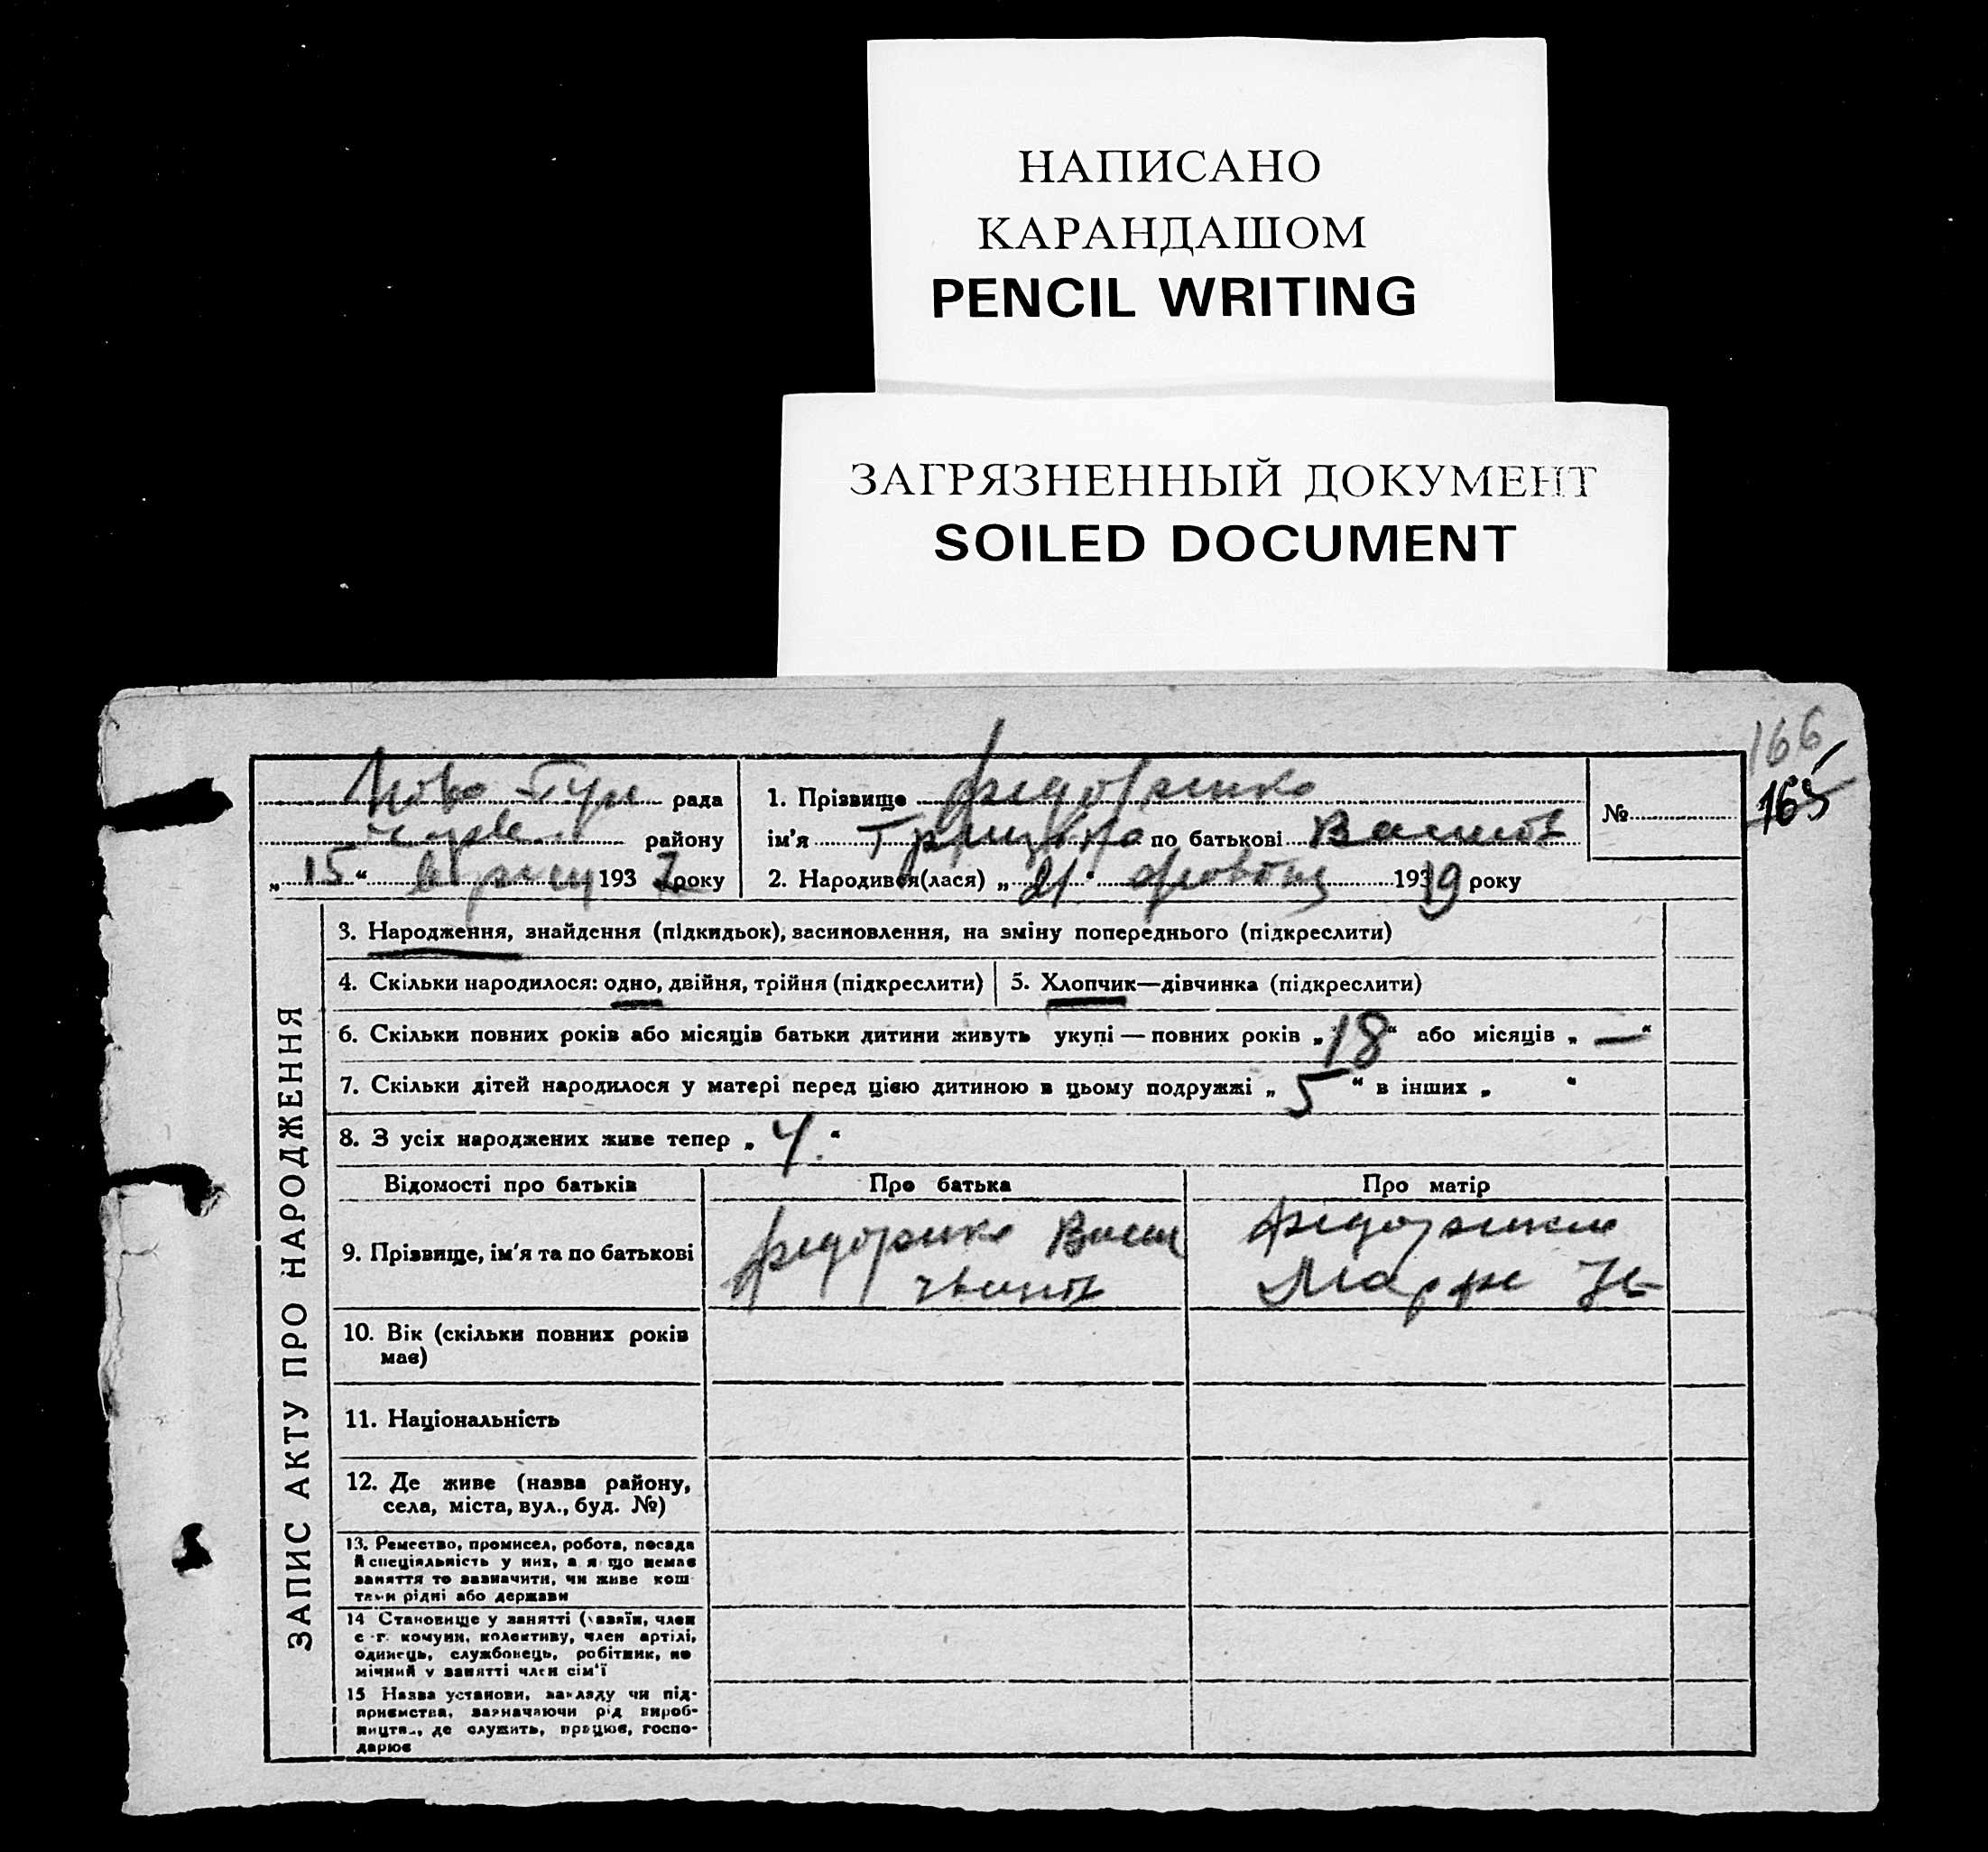 НАПИСАНО
КАРАНДАШОМ
PENCIL WRITING
ЗАГРЯЗНЕННЫЙ ДОКУМЕНТ
SOILED DOCUMENT
166
165
Ново рада
району
„15“ 193 року
1. Прізвище Федоренко
ім'я по батькові
2. Народився(лася) „21“ 1919 року
№
ЗАПИС АКТУ ПРО НАРОДЖЕННЯ
3. Народження, знайдення (підкидьок), засиновлення, на зміну попереднього (підкреслити)
4. Скільки народилося: одно, двійня, трійня (підкреслити)
5. Хлопчик—дівчинка (підкреслити)
6. Скільки повних років або місяців батьки дитини живуть укупі — повних років „18“ або місяців „—“
7. Скільки дітей народилося у матері перед цією дитиною в цьому подружжі „5“ в інших „ “
8. З усіх народжених живе тепер „4“
Відомості про батьків
Про батька
Про матір
9. Прізвище, ім'я та по батькові
Федоренко
Федоренко
10. Вік (скільки повних років
має)
11. Національність
12. Де живе (назва району,
села, міста, вул., буд. №)
13. Ремество, промисел, робота, посада
й спеціяльність у них, а я що немає
заняття то зазначити, чи живе кош
тами рідні або держави
14 Становище у занятті (хазяїн, член
с.-г. комуни, колективу, член артілі,
одинець, службовець, робітник, по
мічний у занятті член сім'ї
15 Назва установи, закладу чи під-
приємства, зазначаючи рід вироб-
ництва, де служить, працює, госпо-
дарює